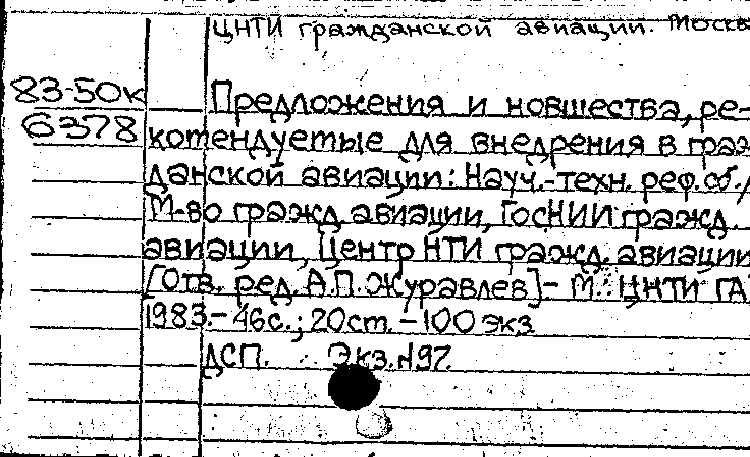 ЦНТИ гражданской авиации. Москва
83-50к
6378
Предложения и новшества, ре-
котендуетые для внедрения в граж
данской авиации: Науч.-техн. реф. сб./
М-во гражд. авиации, ГосНИИ гражд.
авиации, Центр НТИ гражд. авиации
[Отв. ред. А.П. Журавлев] - М.: ЦНТИ ГА
1983.- 46с.; 20ст. - 100 экз
ДСП. Экз. №97